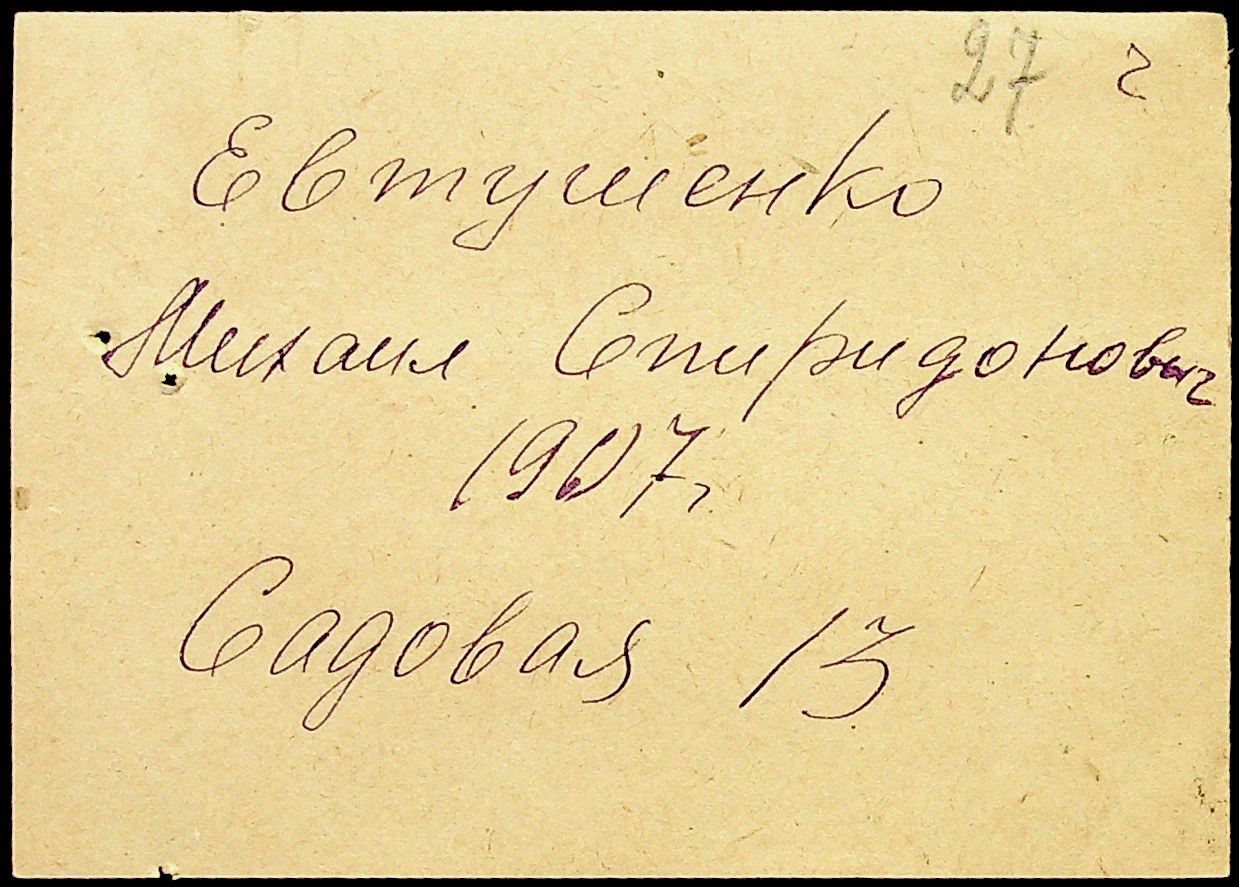 27 г
Евтушенко
Михаил Спиридонович
1907г.
Садовая 13